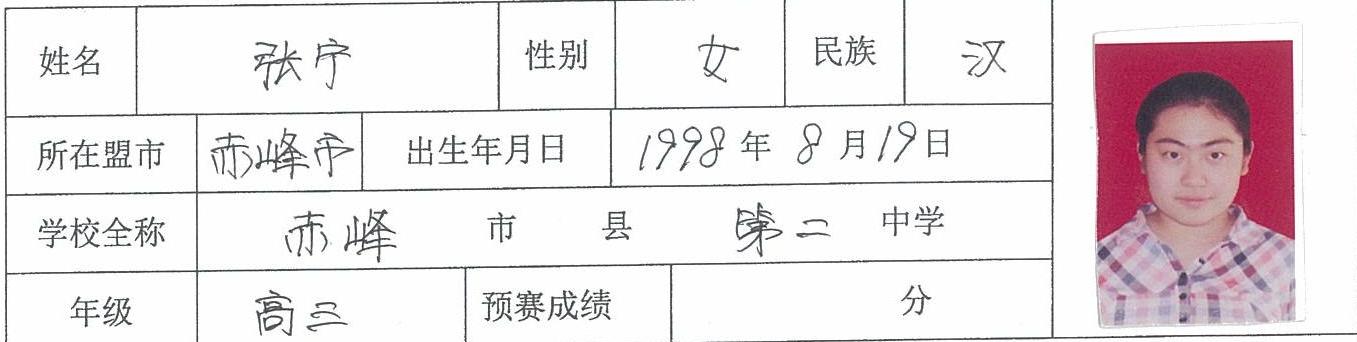 姓名 张宁 性别 女 民族 汉
所在盟市 赤峰市 出生年月日 1998年8月19日
学校全称 赤峰 市 县 第二 中学
年级 高三 预赛成绩 分